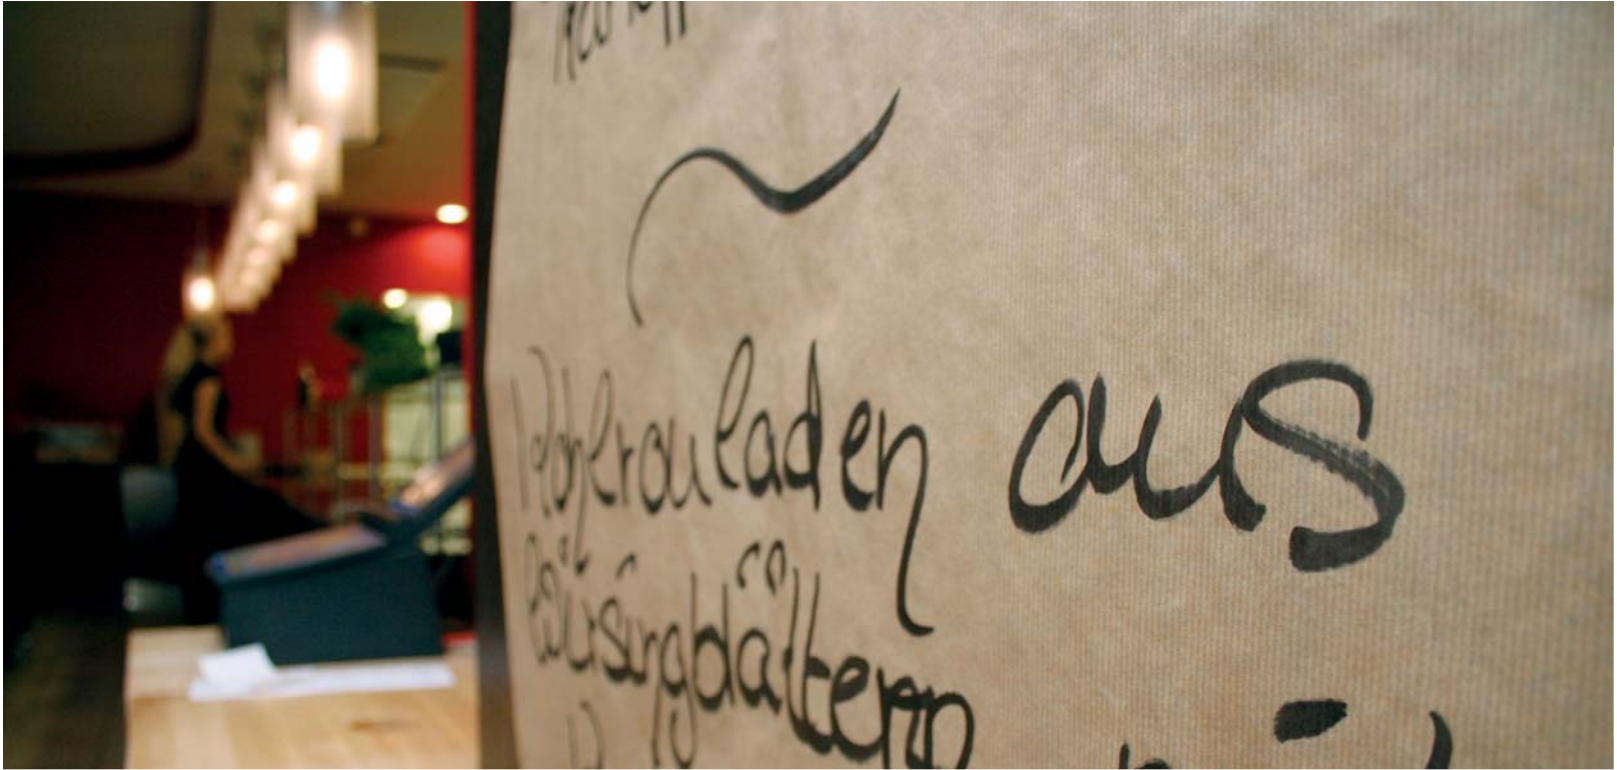 Kohlrouladen aus
Wirsingblättern